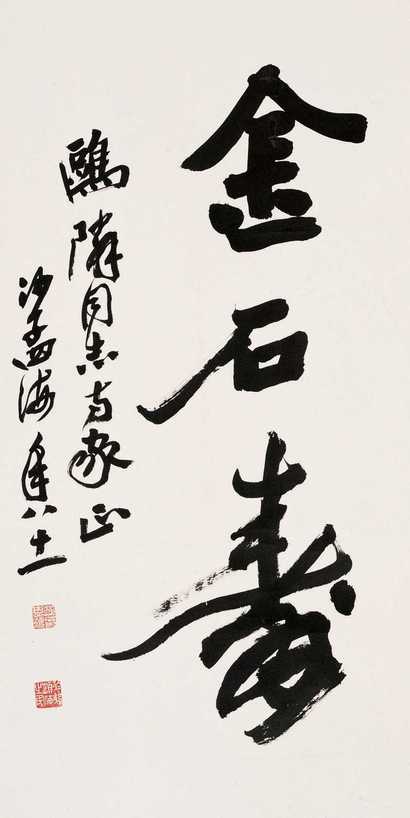 金石寿
鸥隣同志方家正
沙孟海年八十一